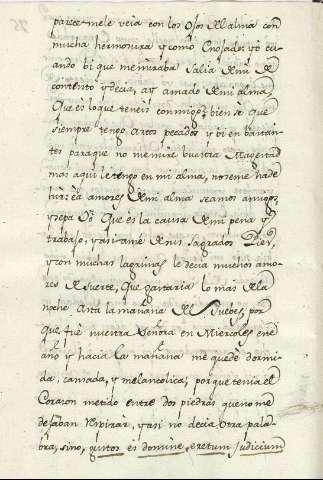 pareceme le veia con los ojos del alma con
mucha hermosura y como Enojado: yo cu
ando bi que me miraba Salia de mi de
contento y decia, ay amado de mi alma
Que es lo que teneis conmigo? bien se que
siempre tengo artos pecados y bi en bastan
tes para que no me mire buestra Magestad
mas aqui le tengo en mi alma, no se me ha de
hir: ea amores de mi alma seamos amigos
y sepa yo Que es la causa de mi pena y
trabajo, y asi ame de sus sagrados Pies,
y con muchas lagrimas le decia muchos amo
res de suerte, que gastaria lo mas de la
noche asta la mañana del Juebes, por
que, fue nuestra Señora en Miercoles ene
año y hacia la mañana me quede dormi
da, cansada, y melancolica, porque tenia el
Corazon metido entre dos piedras que no me
dejaban respirar, y asi no decia otra pala
bra, sino, justos es domine, eretum judicium